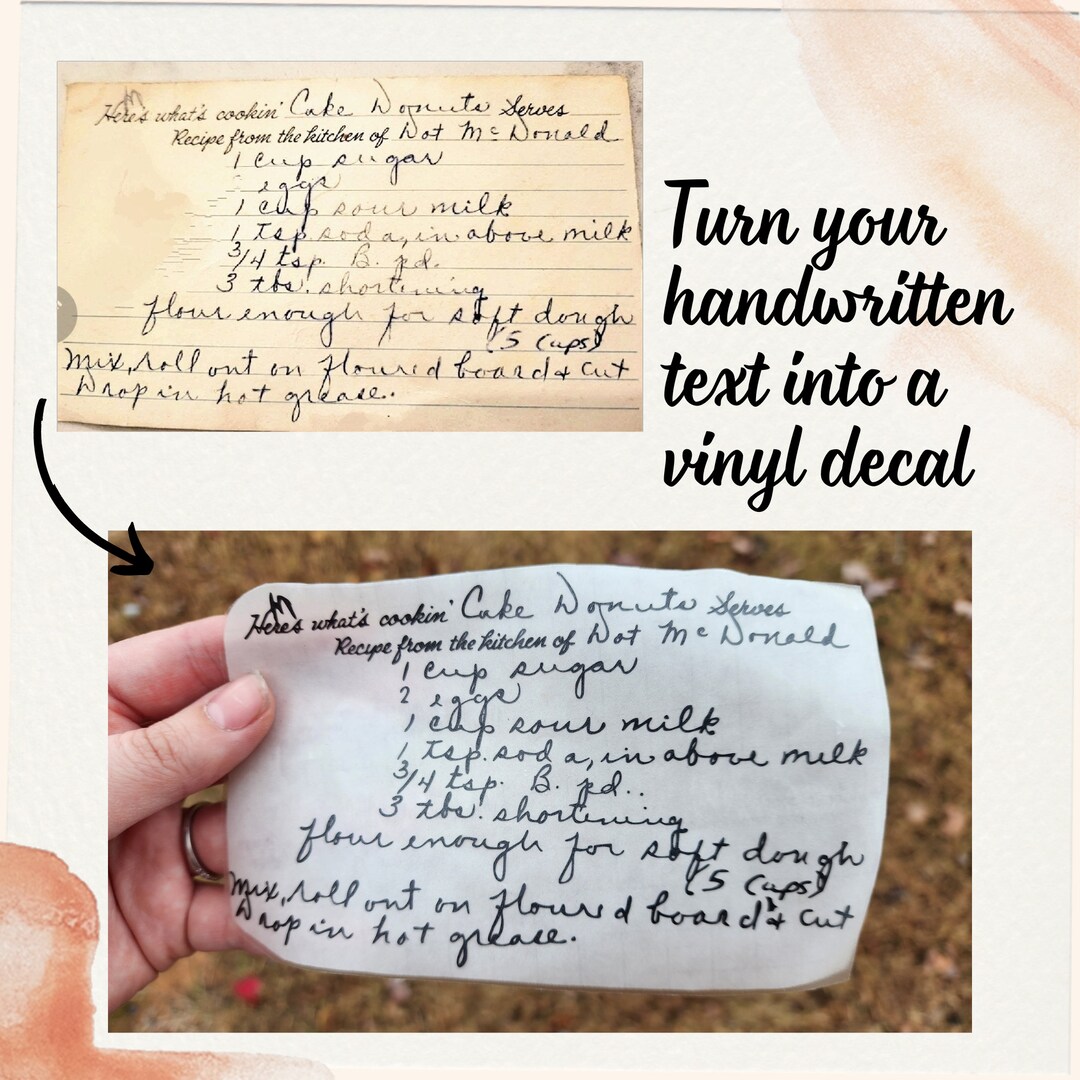 Here's what's cookin' Cake Donuts Serves
Recipe from the kitchen of Dot Mc Donald
1 cup sugar
eggs
1 cup sour milk
1 tsp. soda, in above milk
3/4 tsp. B. pd.
3 tbs. shortening
flour enough for soft dough
(5 cups)
Mix, roll out on floured board & cut
Drop in hot grease.
Turn your
handwritten
text into a
vinyl decal
Here's what's cookin' Cake Donuts Serves
Recipe from the kitchen of Dot Mc Donald
1 cup sugar
2 eggs
1 cup sour milk
1 tsp. soda, in above milk
3/4 tsp. B. pd..
3 tbs. shortening
flour enough for soft dough
(5 cups)
Mix, roll out on floured board & cut
Drop in hot grease.